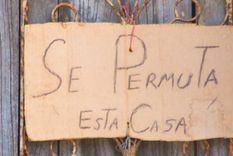 SE PERMUTA
ESTA CASA